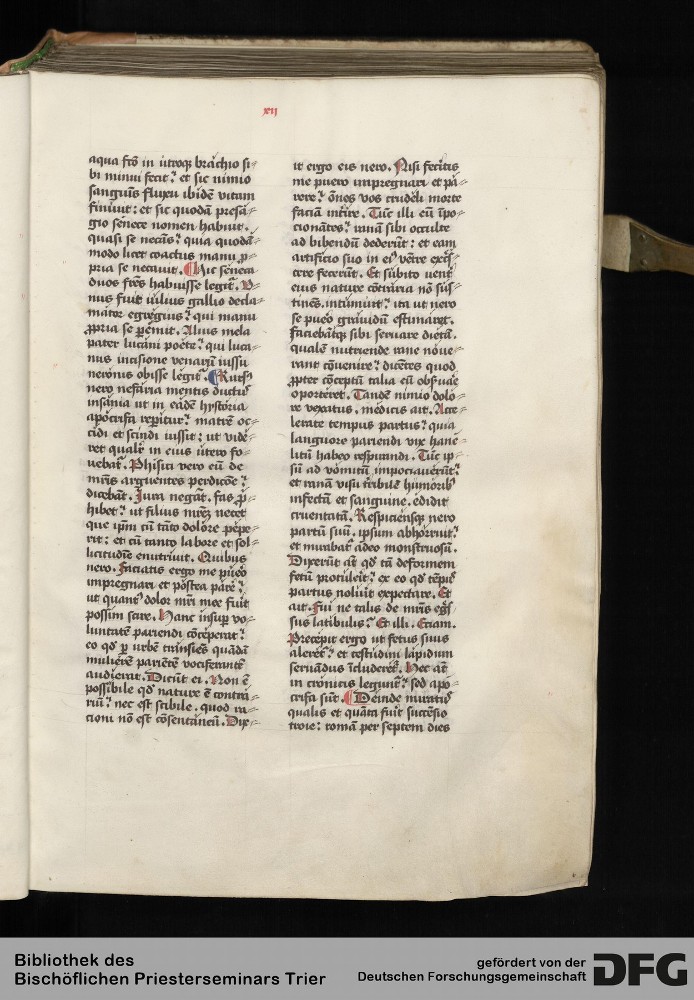 xii
aqua fcō in utroqꝫ brachio si⸗
bi minui fecit ? et sic nimio
sanguīs fluxu ibidē vitam
finiuit : et sic quodā presa⸗
gio senece nomen habuit .
quasi se necās ? quia quodā⸗
modo licet coactus manu ꝓ⸗
pria se necauit . Hic seneca
duos frēs habuisse legit̄ . V⸗
nus fuit iulius gallio decla⸗
mator egregius ? qui manu
ꝓpria se pemit . Alius mela
pater lucani poete ? qui luca⸗
nus incisione venarū iussu
neronis obisse legit̄ . Rursꝰ
nero nefaria mentis ductꝰ
insania ut in eadē hystoria
apocrifa repitur ? matrē oc⸗
cidi et scindi iussit : ut vide⸗
ret qualit̄ in eius utero fo⸗
uebat̄ . Phisici vero eū de
mr̄is arguentes perdicōe ?
dicebāt . Jura negāt . fas ꝓ⸗
hibet ? ut filius mr̄eꝫ necet
que ip̄m cū tāto dolore pepe⸗
rit : et cū tanto labore et sol⸗
licitudīe enutriuit . Quibus
nero . Faciatis ergo me pueo
impregnari et postea pare ?
ut quantꝰ dolor mr̄i mee fuit
possim scire . Hanc insup vo⸗
luntatē pariendi cōceperat ?
eo qd̄ ꝑ urbē transiēs quādā
mulierē parientē vociferantē
audierat . Dicūt ei . Non ē
possibile qd̄ nature ē contra⸗
riū ? nec est scibile . quod ra⸗
cioni nō est cōsentaneū . Dix⸗
it ergo eis nero . Nisi fecitis
me puero impregnari et pa⸗
rere ? ōnes vos crudeli morte
faciā interire . Tūc illi eū īpo⸗
cionātes ? ranā sibi occulte
ad bibendū dederūt : et eam
artificio suo in eiꝰ vētre excs⸗
cere fecerūt . Et subito vent̄
eius nature cōtraria nō sus⸗
tinēs . intumuit ? ita ut nero
se pueo grauidū estimaret .
Faciebātqꝫ sibi seruare dietā .
qualē nutriende rane noue⸗
rant cōuenire ? dicētes quod
ꝓpter cōceptū talia eū obs̄uare
oporteret . Tandē nimio dolo⸗
re vexatus . medicis ait . Acce⸗
lerate tempus partus ? quia
languore pariendi vix hane⸗
litū habeo respirandi . Tūc ip⸗
sū ad vomitū impociauerūt ?
et ranā visu tribilē humoribꝰ
infectā et sanguine . edidit
cruentatā . Respiciensqꝫ nero
partū suū . ipsum abhorruit ?
et mirabat̄ adeo monstruosū .
Dixerūt aūt qd̄ tā deformem
fetū protulerit ? ex eo qd̄ tēpꝰ
partus noluit expectare . Et
ait . Fui ne talis de mr̄is egs̄⸗
sus latibulis ? Et illi . Etiam .
Precepit ergo ut fetus suus
aleret̄ ? et testudini lapidum
seruādus īcluderet̄ . Hec aūt
in cronicis legunt̄ ? sed apo⸗
crifa sūt . Deinde miratꝰ
qualis et quāta fuit succēsio
troie : romā per septem dies
Bibliothek des
Bischöflichen Priesterseminars Trier
gefördert von der
Deutschen Forschungsgemeinschaft
DFG